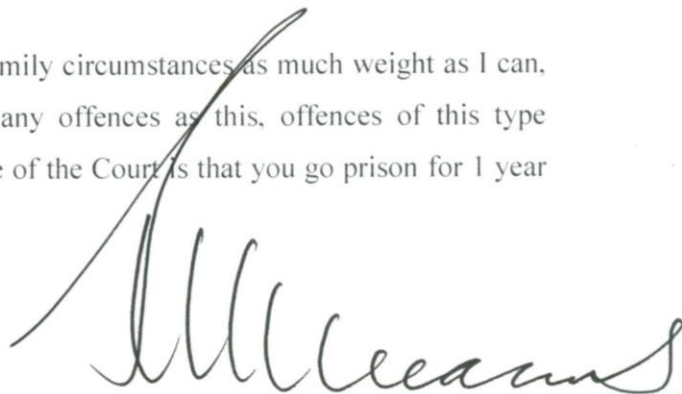 mily circumstances as much weight as I can,
any offences as this, offences of this type
e of the Court is that you go prison for 1 year